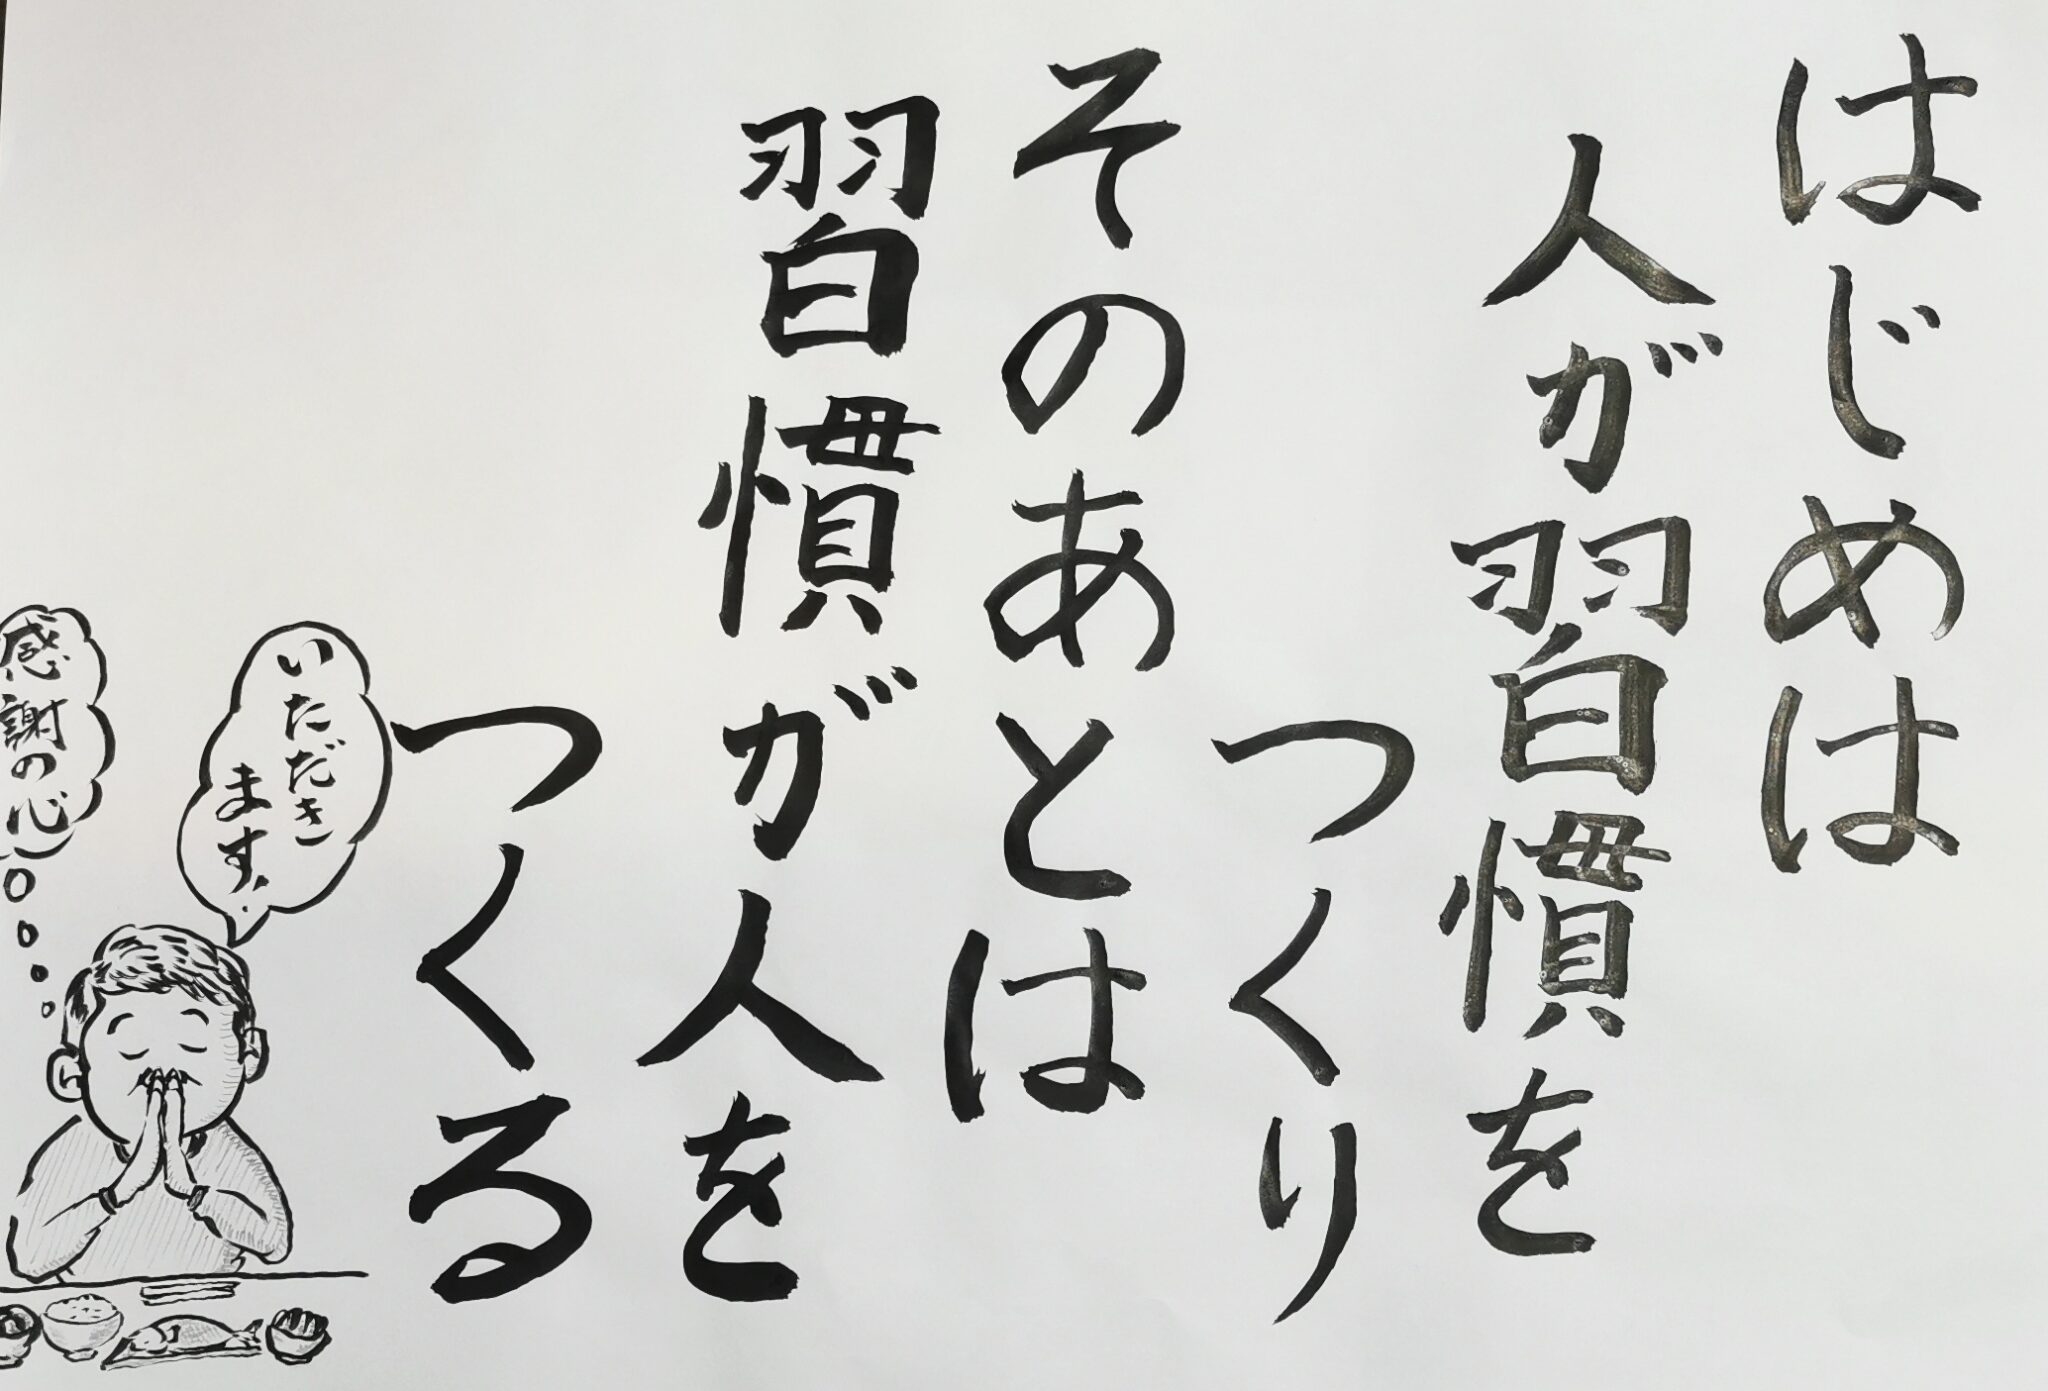 はじめは
人が習慣を
つくり
そのあとは
習慣が人を
つくる
いただき
ます。
感謝の心